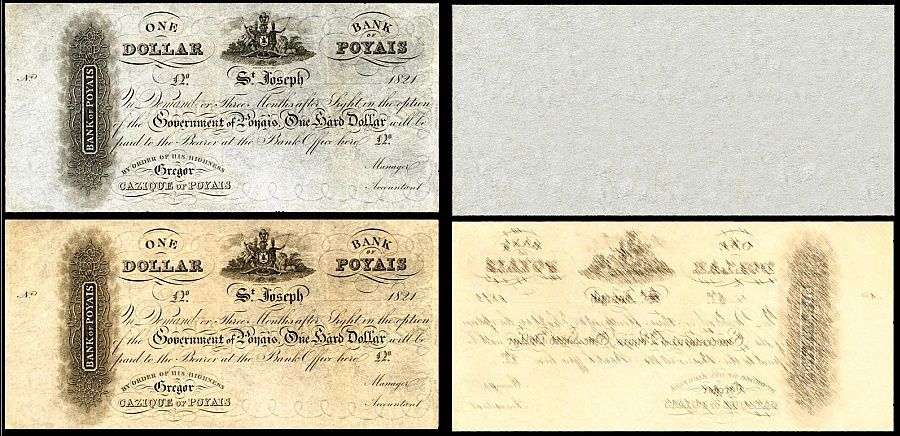 ONE
DOLLAR
BANK
OF
POYAIS
No
No
St. Joseph
1821
BANK OF POYAIS
On Demand, or Three Months after Sight in the option
of the Government of Poyais, One Hard Dollar will be
paid to the Bearer at the Bank Office here £2o
BY ORDER OF HIS HIGHNESS
Gregor
CAZIQUE OF POYAIS
Manager
Accountant
ONE
DOLLAR
BANK
OF
POYAIS
No
No
St. Joseph
1821
BANK OF POYAIS
On Demand, or Three Months after Sight in the option
of the Government of Poyais, One Hard Dollar will be
paid to the Bearer at the Bank Office here £2o
BY ORDER OF HIS HIGHNESS
Gregor
CAZIQUE OF POYAIS
Manager
Accountant